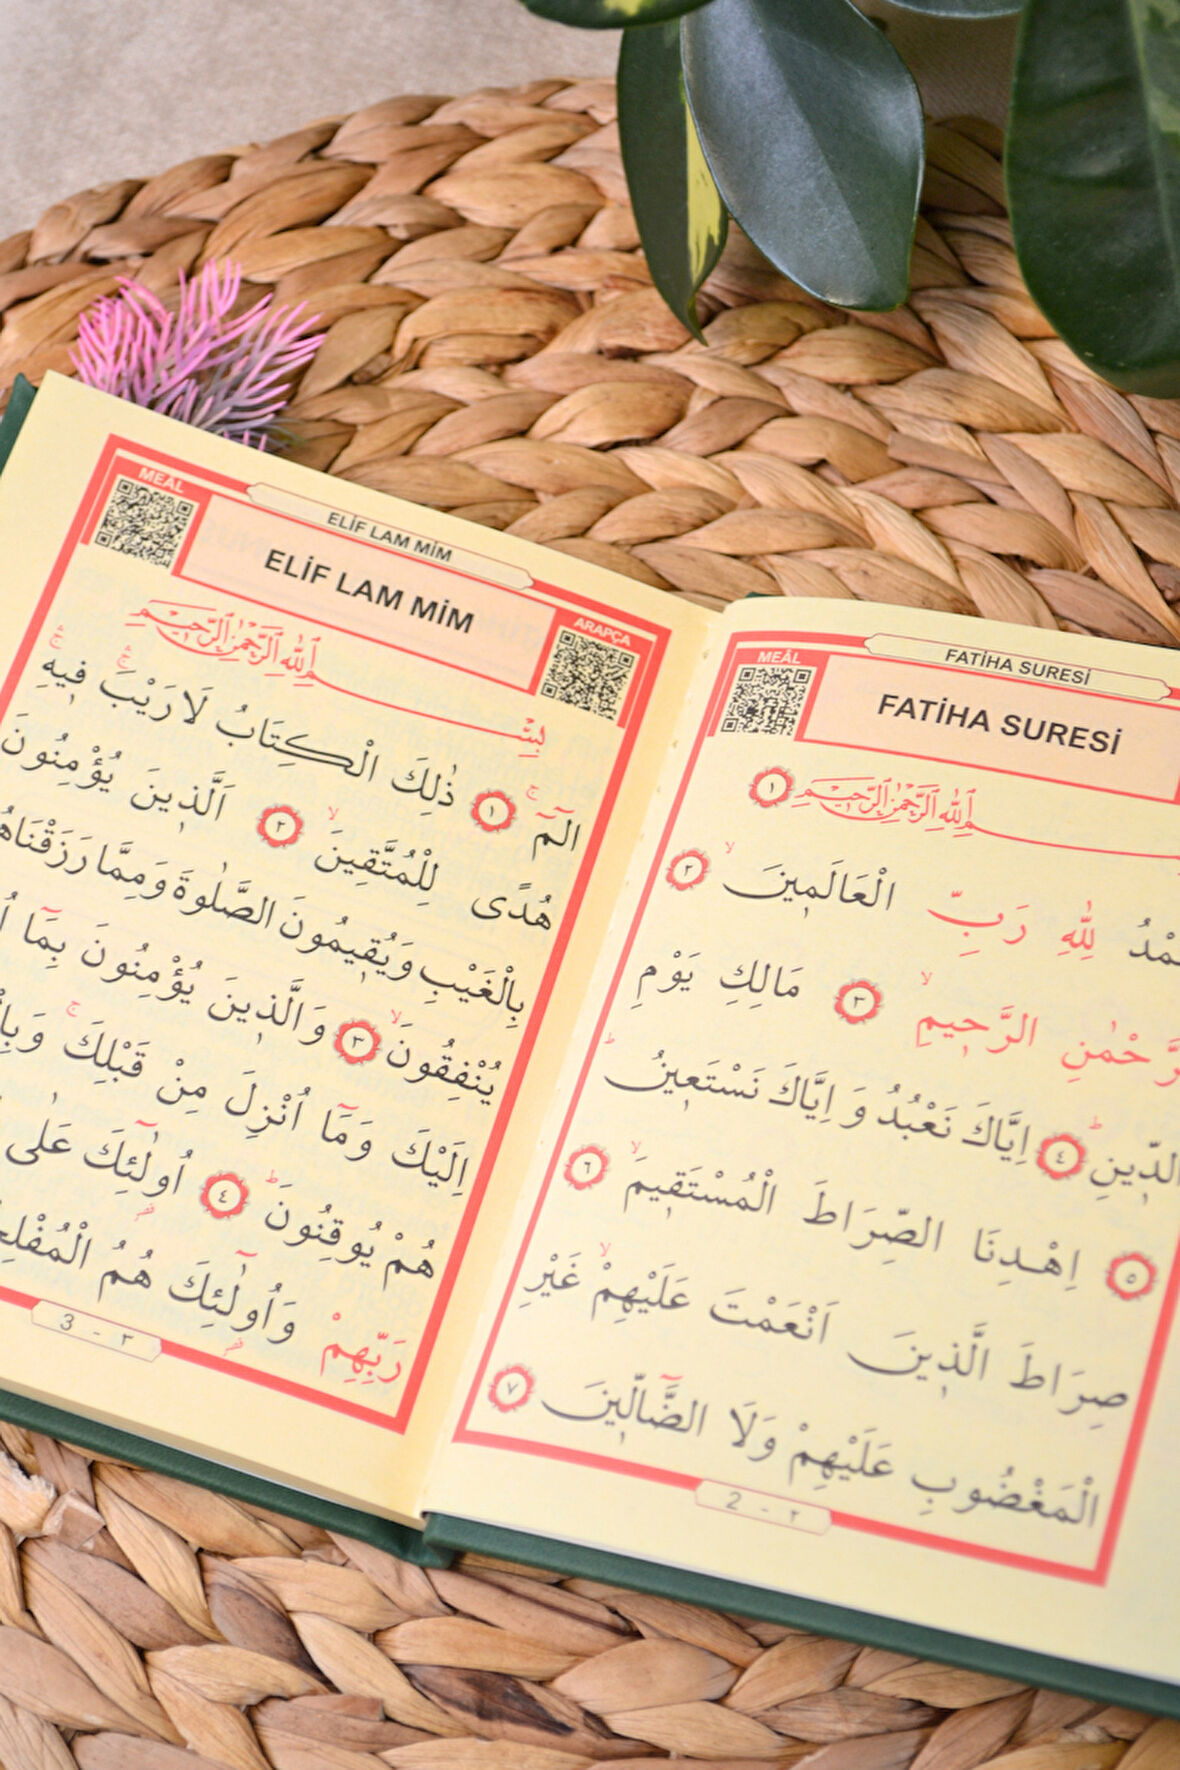 FATİHA SURESİ
MEÂL
FATİHA SURESİ
اللّٰهِ الرَّحْمٰنِ الرَّحِيمِ ١
لِلّٰهِ رَبِّ الْعَالَمِينَ ٢
الرَّحِيمِ ٣ مَالِكِ يَوْمِ
الدِّينِ ٤ اِيَّاكَ نَعْبُدُ وَ اِيَّاكَ نَسْتَعِينُ
٥ اِهْدِنَا الصِّرَاطَ الْمُسْتَقِيمَ ٦
صِرَاطَ الَّذِينَ اَنْعَمْتَ عَلَيْهِمْ غَيْرِ
الْمَغْضُوبِ عَلَيْهِمْ وَلَا الضَّالِّينَ ٧
2 - ٢
ELİF LAM MİM
MEAL
ELİF LAM MİM
ARAPÇA
بِسْمِ اللّٰهِ الرَّحْمٰنِ الرَّحِيمِ
الٓمٓ ١ ذٰلِكَ الْكِتَابُ لَا رَيْبَ فِيهِ
هُدًى لِلْمُتَّقِينَ ٢ اَلَّذِينَ يُؤْمِنُونَ
بِالْغَيْبِ وَيُقِيمُونَ الصَّلٰوةَ وَمِمَّا رَزَقْنَاهُمْ
يُنْفِقُونَ ٣ وَالَّذِينَ يُؤْمِنُونَ بِمَٓا
اِلَيْكَ وَمَٓا اُنْزِلَ مِنْ قَبْلِكَ
هُمْ يُوقِنُونَ ٤ اُولٰٓئِكَ عَلٰى
رَبِّهِمْ وَاُولٰٓئِكَ هُمُ
3 - ٣